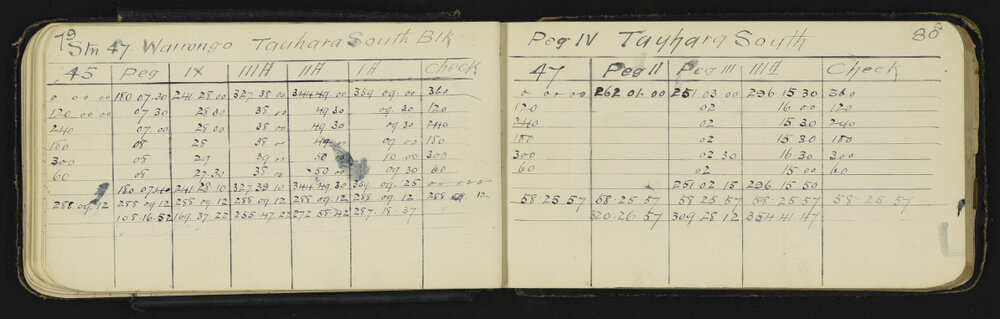 79
Stn 47 Wairongo Tauhara South Blk
45 Peg IX IIIH IIH IH Check
0 00 00 180 07.30 241 28 00 327 38 00 344 49 30 359 09 30 360
120 00 00 07 30 28 30 38 49 30 09 30 120
240 07 00 28 00 38 00 49 30 09 30 240
180 08 28 38 00 49 09 00 180
300 08 29 39 00 50 10 00 300
60 08 27.30 38 00 50 00 09 30 60
180 07.40 241 28 10 327 38 10 344 49 30 359 09 25
288 09.12 288 09 12 288 09 12 288 09 12 288 09 12 288 09 12 288 09 12
108.16.52 169 37 22 255 47 22 272 58 42 287.18.37
80
Peg IV Tauhara South
47 Peg II Peg III IIIH Check
0 00 00 262 01.00 251 03 00 296 15 30 360
120 02 16 00 120
240 02 15 30 240
180 02 15 30 180
300 02 30 16 30 300
60 02 15 00 60
251 02 15 296 15 50
58 25 57 58 25 57 58 25 57 58 25 57 58 25 57
320.26 57 309 28 12 354 41 47